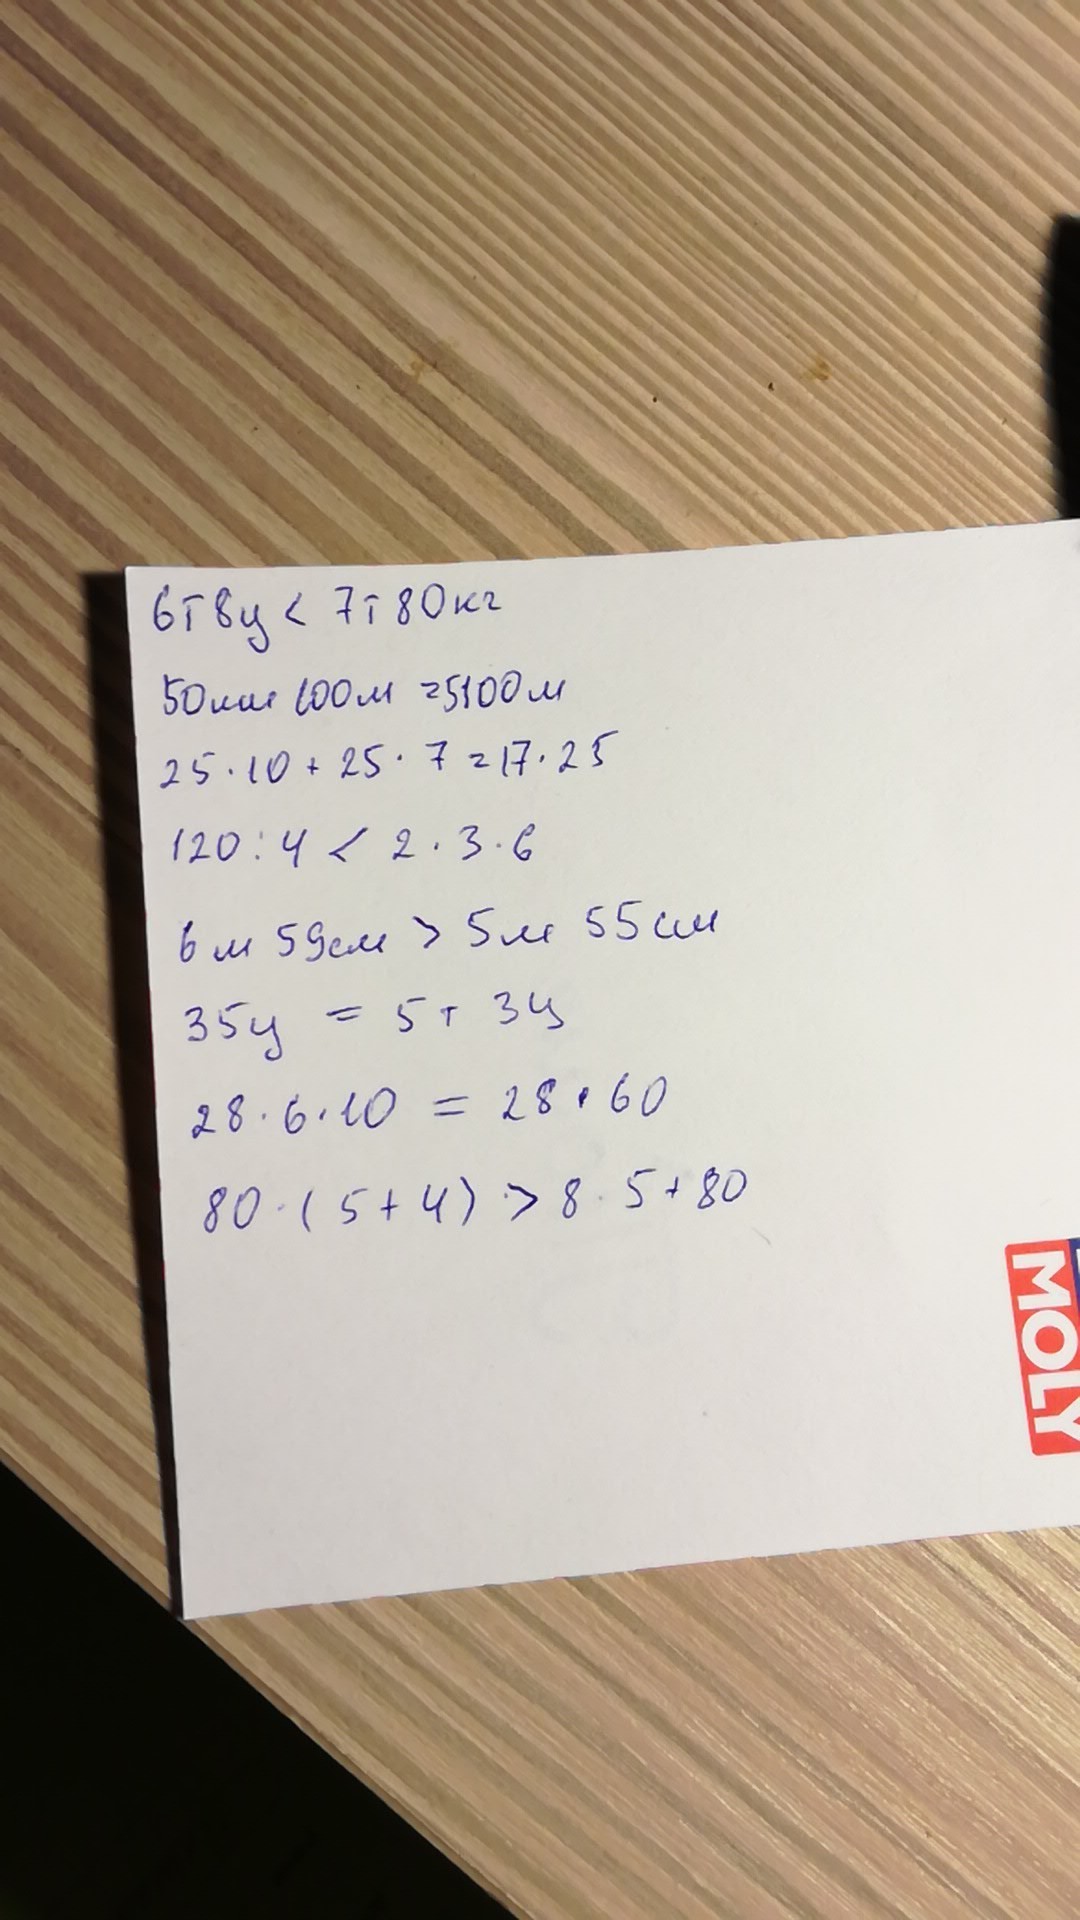 6т 8ц < 7т 80кг
50мм 100м = 5100м
25·10 + 25·7 = 17·25
120:4 < 2·3·6
6м 59см > 5м 55см
35ц = 5т 3ц
28·6·10 = 28·60
80·(5+4) > 8·5+80
MOLY